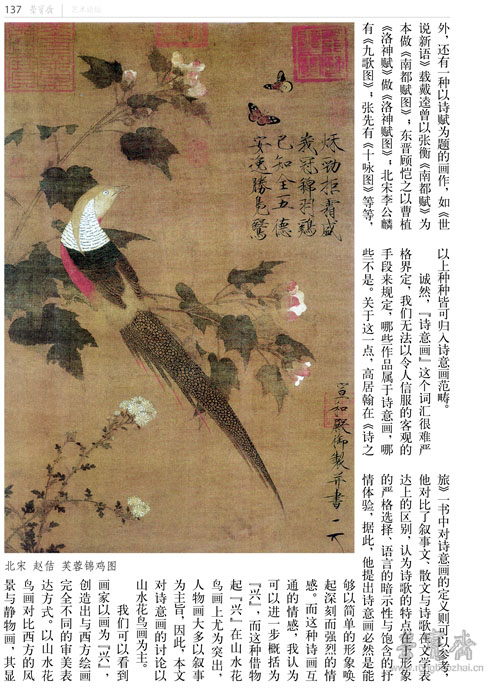 137 艺术论坛
外，还有一种以诗赋为题的画作，如《世
说新语》载戴逵曾以张衡《南都赋》为
本做《南都赋图》；东晋顾恺之以曹植
《洛神赋》做《洛神赋图》；北宋李公麟
有《九歌图》；张先有《十咏图》等等，
以上种种皆可归入诗意画范畴。
诚然，『诗意画』这个词汇很难严
格界定，我们无法以令人信服的客观的
手段来规定，哪些作品属于诗意画，哪
些不是。关于这一点，高居翰在《诗之
旅》一书中对诗意画的定义则可以参考，
他对比了叙事文、散文与诗歌在文学表
达上的区别，认为诗歌的特点在于形象
的严格选择、语言的暗示性与饱含的抒
情体验，据此，他提出诗意画必然是能
够以简单的形象唤
起深刻而强烈的情
感。而这种诗画互
通的情感，我认为
可以进一步概括为
『兴』，而这种借物
起『兴』在山水花
鸟画上尤为突出，
人物画大多以叙事
为主旨，因此，本文
对诗意画的讨论以
山水花鸟画为主。
我们可以看到
画家以画为『兴』，
创造出与西方绘画
完全不同的审美表
达方式。以山水花
鸟画对比西方的风
景与静物画，其显
秋勁拒霜盛
峨冠錦羽鷄
已知全五德
安逸勝鳧鷖
宣和殿御製并書
北宋 赵佶 芙蓉锦鸡图